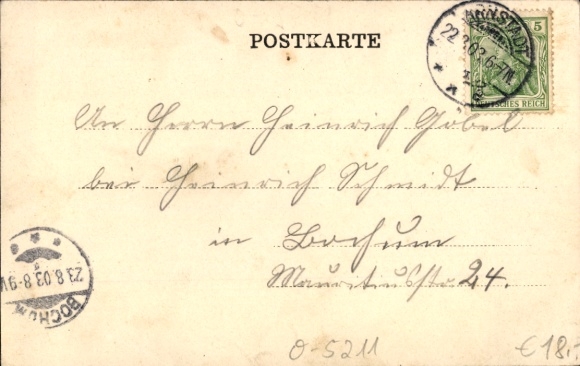 POSTKARTE
ARNSTADT
22.8.03.6-7N.
5
DEUTSCHES REICH
An Herrn Heinrich Gobel
bei Heinrich Schmidt
in Bochum
Mauritiusstr. 24.
23.8.03.8-9V
BOCHUM
0-5211
€ 18,-